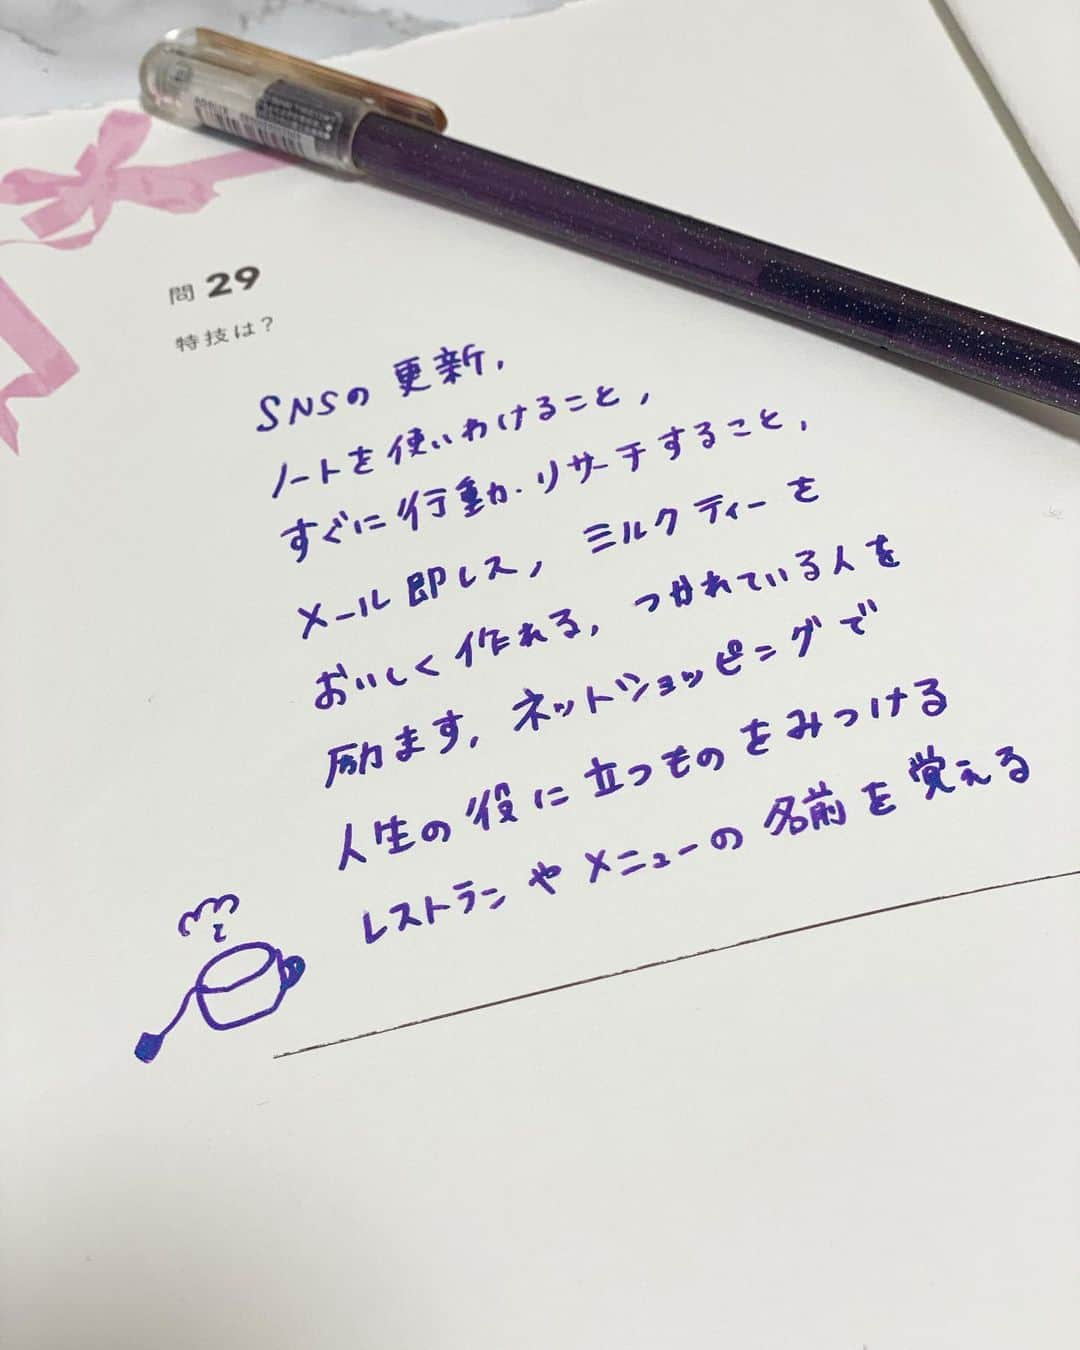 問 29
特技は？
SNSの更新，
ノートを使いわけること，
すぐに行動・リサーチすること，
メール即レス，ミルクティーを
おいしく作れる，つかれている人を
励ます，ネットショッピングで
人生の役に立つものをみつける
レストランやメニューの名前を覚える